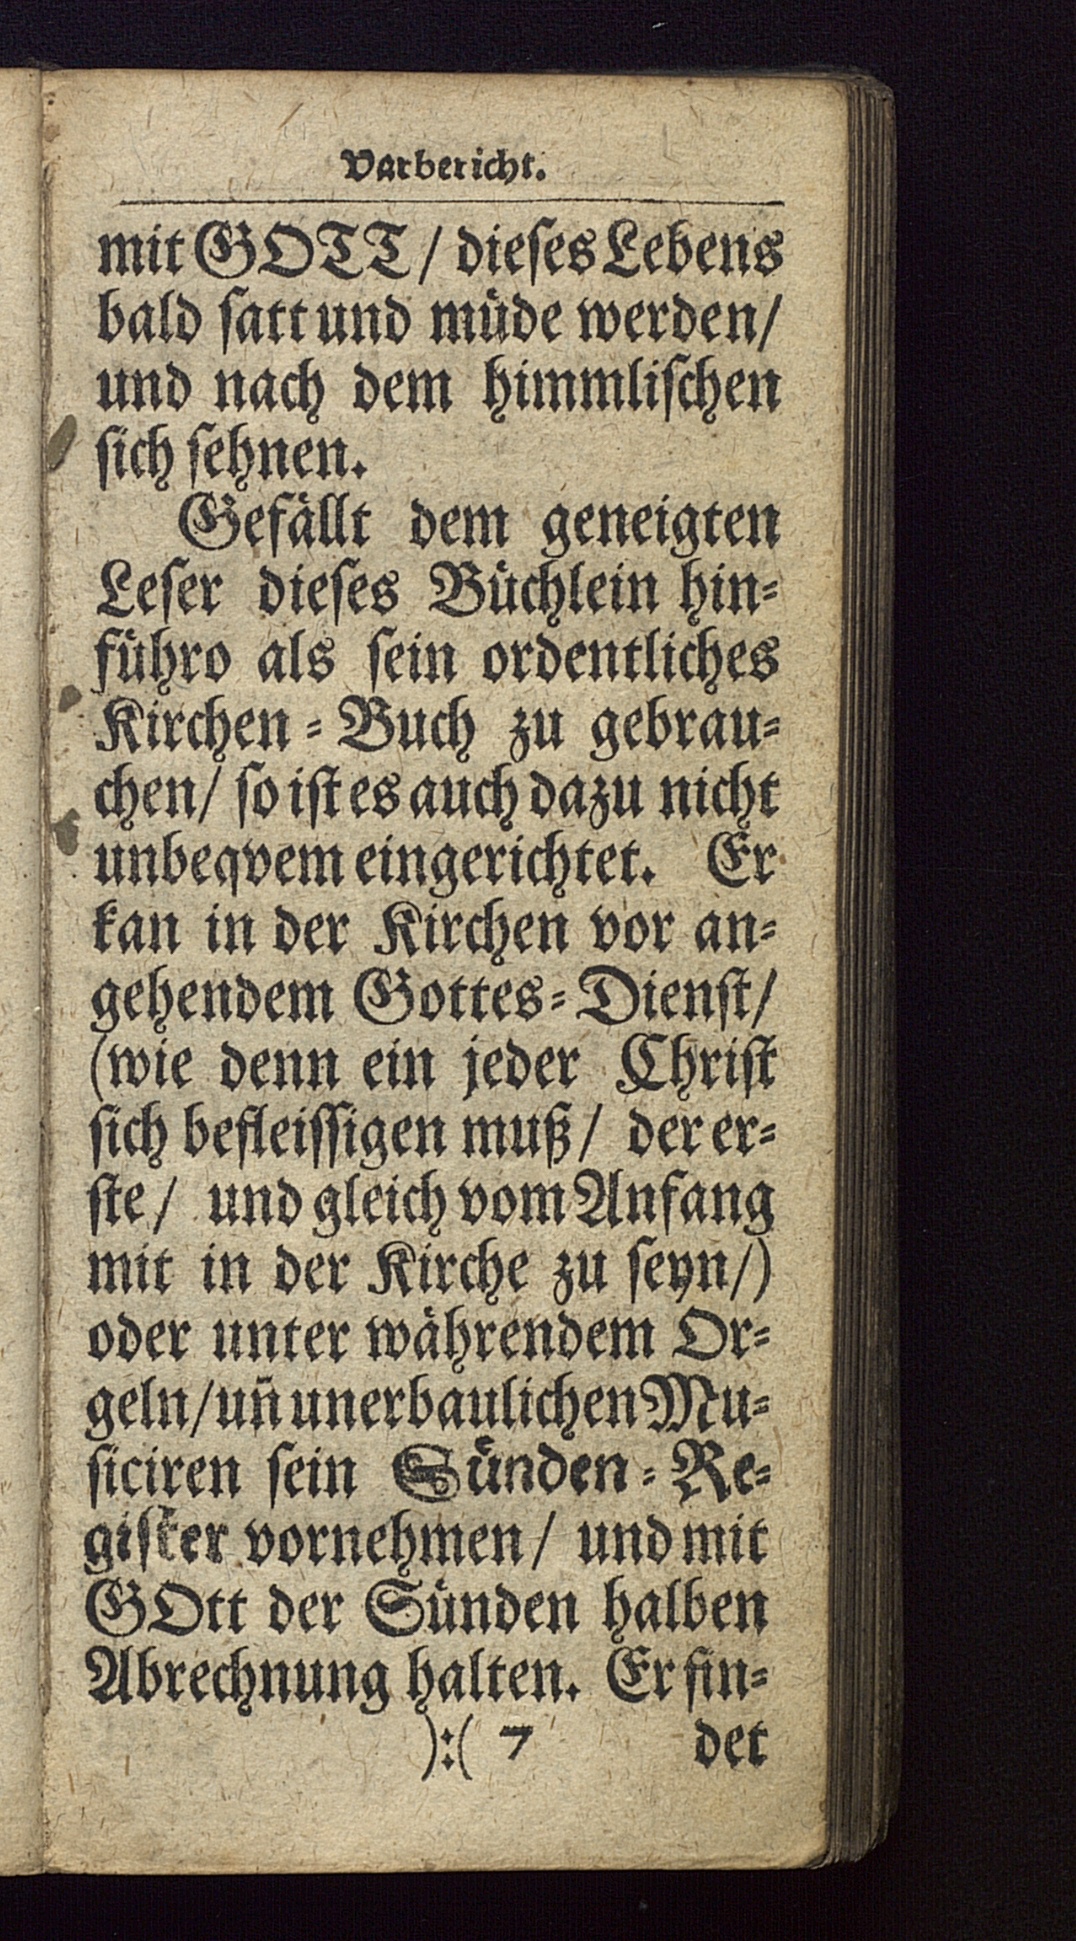 Vorbericht.
mit GOTT / dieſes Lebens
bald ſatt und müde werden/
und nach dem himmliſchen
ſich ſehnen.
Gefällt dem geneigten
Leſer dieſes Büchlein hin-
führo als ſein ordentliches
Kirchen-Buch zu gebrau-
chen/ ſo iſt es auch dazu nicht
unbeqvem eingerichtet. Er
kan in der Kirchen vor an-
gehendem Gottes-Dienſt/
(wie denn ein jeder Chriſt
ſich befleiſſigen muß/ der er-
ſte/ und gleich vom Anfang
mit in der Kirche zu ſeyn/)
oder unter währendem Or-
geln/ un̄ unerbaulichen Mu-
ſiciren ſein Sünden-Re-
giſter vornehmen/ und mit
GOtt der Sünden halben
Abrechnung halten. Er fin-
):( 7 det